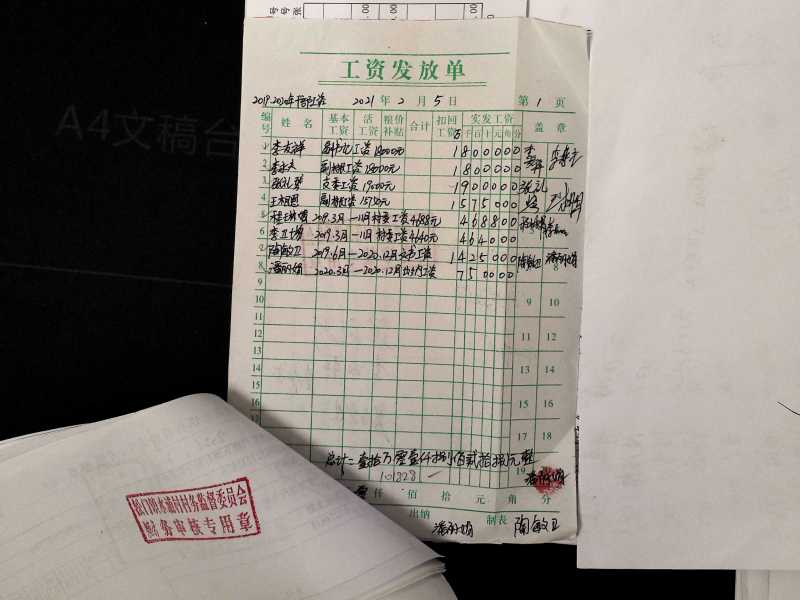 A4文稿台
工资发放单
2019.2020年干部工资 2021年2月5日 第1页
编号 姓名 基本工资 活工资 粮价补贴 合计 扣回工资 实发工资 盖章
万千百十元角分
1 李友祥 副书记工资18000元 1800000
2 李永夫 副村长工资18000元 1800000
3 张礼琴 支委工资19000元 1900000
4 王祖恩 副村长工资15750元 1575000
5 2019.3月—11月村委工资4688元 468800
6 李卫娣 2019.3月—11月村委工资4640元 464000
7 陶敏卫 2019.6月—2020.12月文书工资 1425000 陶敏卫
8 潘丽娟 2020.3月—2020.12月出纳工资 750000 潘丽娟
9 9 10
10
11 11 12
12
13 13 14
14
15 15 16
16
17 17 18
总计=壹拾万零壹仟捌佰贰拾捌元整 19
101828
仟佰拾元角分
出纳 潘丽娟 制表 陶敏卫
村务监督委员会
财务审核专用章